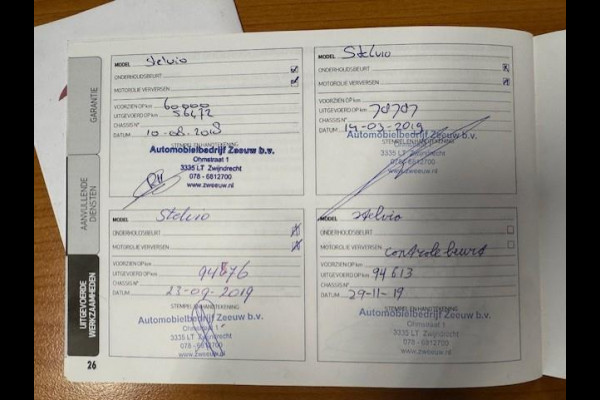 GARANTIE
AANVULLENDE
DIENSTEN
UITGEVOERDE
WERKZAAMHEDEN
26
MODEL Stelvio
ONDERHOUDSBEURT
MOTOROLIE VERVERSEN
VOORZIEN OP km 60.000
UITGEVOERD OP km 56472
CHASSIS N°
DATUM 10-08-2018
STEMPEL EN HANDTEKENING
Automobielbedrijf Zeeuw b.v.
Ohmstraat 1
3335 LT Zwijndrecht
078 - 6812700
www.zweeuw.nl
MODEL Stelvio
ONDERHOUDSBEURT
MOTOROLIE VERVERSEN
VOORZIEN OP km
UITGEVOERD OP km
CHASSIS N°
DATUM 14-03-2019
Automobielbedrijf Zeeuw b.v.
STEMPEL EN HANDTEKENING
Ohmstraat 1
3335 LT Zwijndrecht
078 - 6812700
www.zweeuw.nl
MODEL Stelvio
ONDERHOUDSBEURT
MOTOROLIE VERVERSEN
VOORZIEN OP km
UITGEVOERD OP km
CHASSIS N°
DATUM 23-09-2019
STEMPEL EN HANDTEKENING
Automobielbedrijf Zeeuw b.v.
Ohmstraat 1
3335 LT Zwijndrecht
078 - 6812700
www.zweeuw.nl
MODEL Stelvio
ONDERHOUDSBEURT
MOTOROLIE VERVERSEN
controle beurt
VOORZIEN OP km
UITGEVOERD OP km 94613
CHASSIS N°
DATUM 29-11-19
STEMPEL EN HANDTEKENING
Automobielbedrijf Zeeuw b.v.
Ohmstraat 1
3335 LT Zwijndrecht
078 - 6812700
www.zweeuw.nl